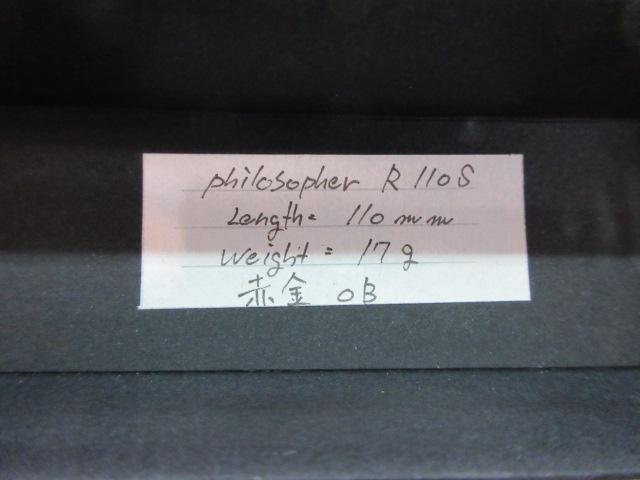 philosopher R 110S
Length= 110mm
weight = 17g
赤金 OB